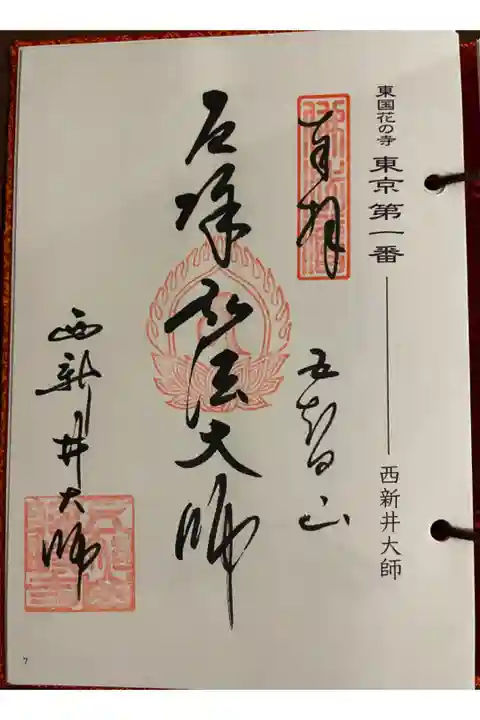 東国花の寺 東京第一番 ――― 西新井大師
奉拝
五智山
厄除弘法大師
西新井大師
7